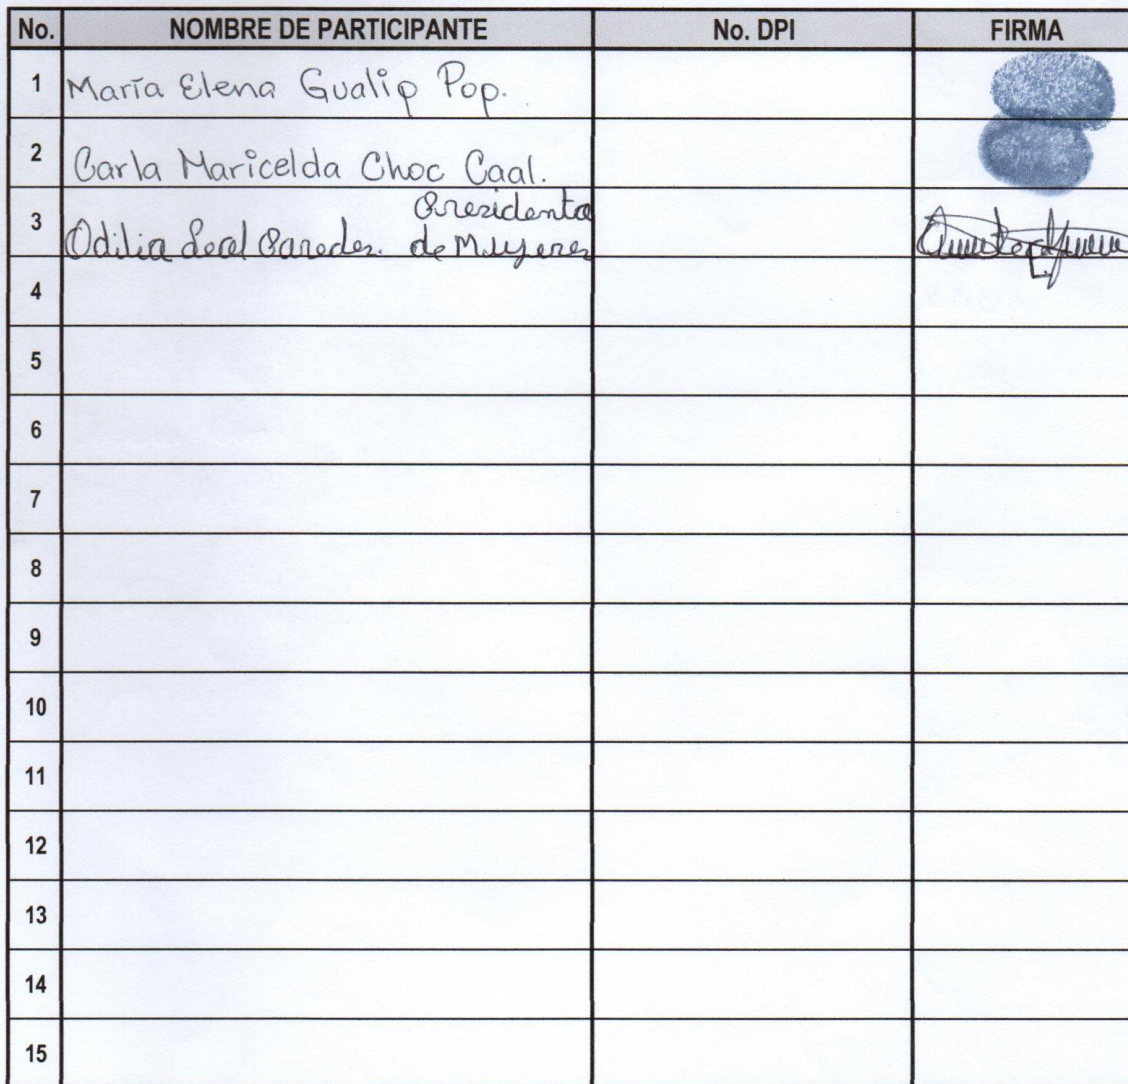 No. NOMBRE DE PARTICIPANTE No. DPI FIRMA
1 María Elena Gualip Pop.
2 Carla Maricelda Choc Caal.
Presidenta
3 Odilia Leal Paredes. de Mujeres
4
5
6
7
8
9
10
11
12
13
14
15